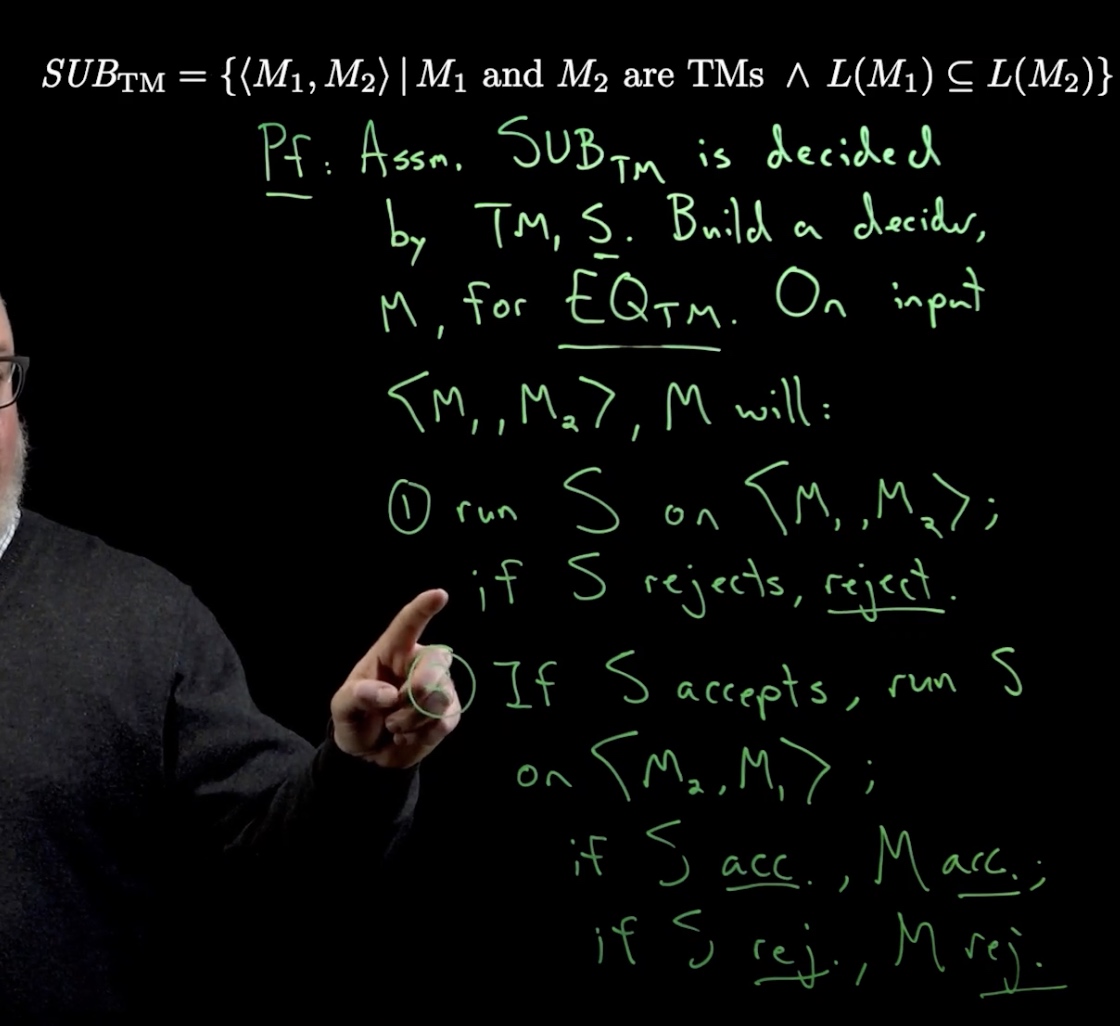 SUB_TM = {⟨M₁, M₂⟩ | M₁ and M₂ are TMs ∧ L(M₁) ⊆ L(M₂)}
Pf: Assm. SUB_TM is decided
by TM, S. Build a decider,
M, for EQ_TM. On input
⟨M₁, M₂⟩, M will:
① run S on ⟨M₁, M₂⟩;
if S rejects, reject.
② If S accepts, run S
on ⟨M₂, M₁⟩;
if S acc., M acc.;
if S rej., M rej.